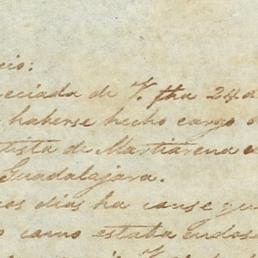 cio:
eciada de V. fha 24 d
haberse hecho cargo
tista de Martiarena e
Guadalajara.
os dias ha cause que
o como estaba endos